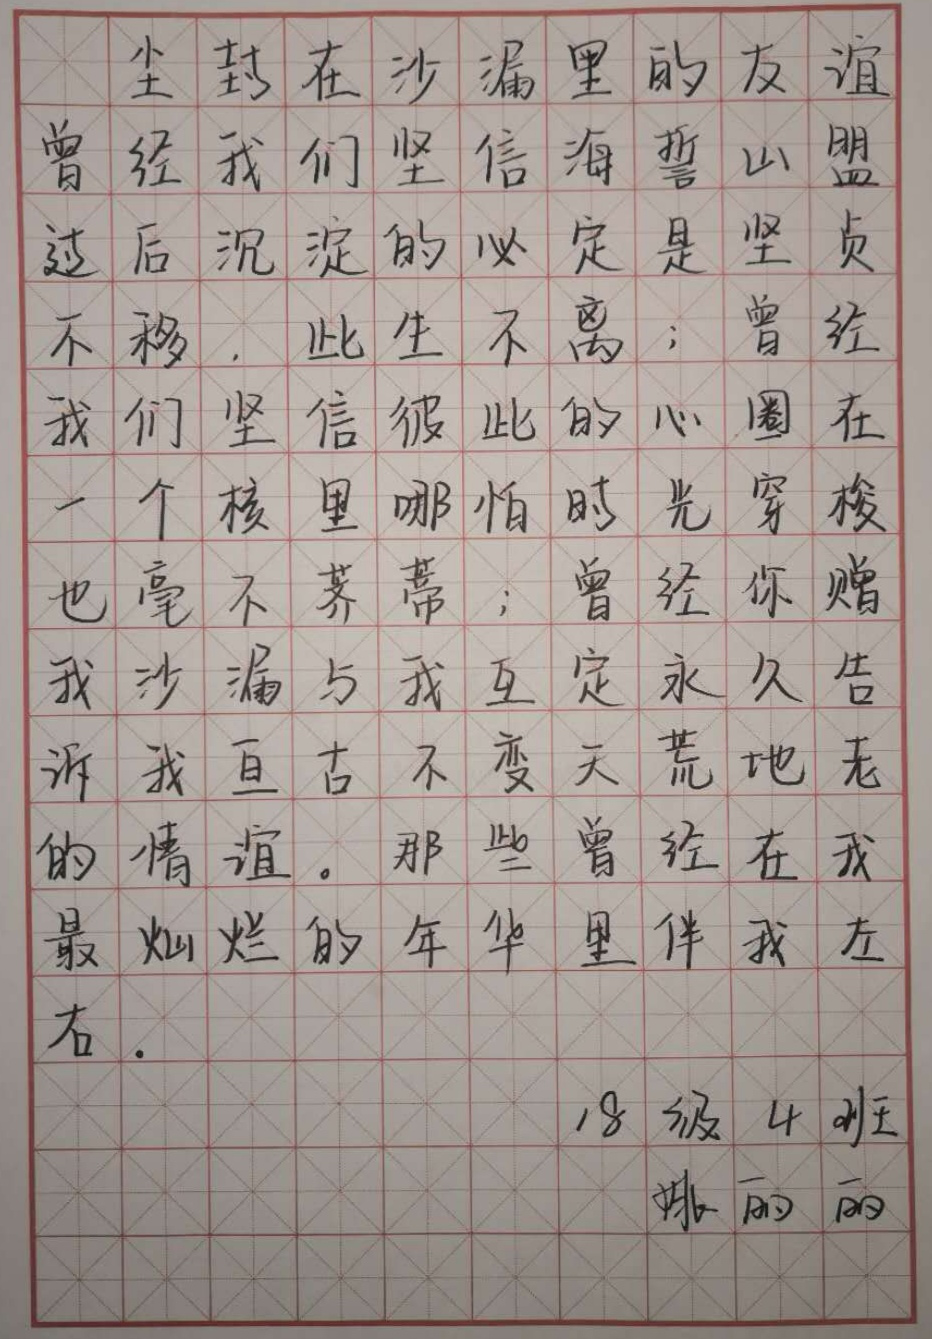 尘封在沙漏里的友谊
曾经我们坚信海誓山盟
过后沉淀的必定是坚贞
不移.此生不离;曾经
我们坚信彼此的心圈在
一个核里哪怕时光穿梭
也毫不荞蒂;曾经你赠
我沙漏与我互定永久告
诉我亘古不变天荒地老
的情谊。那些曾经在我
最灿烂的年华里伴我左
右.
18级4班
姚丽丽